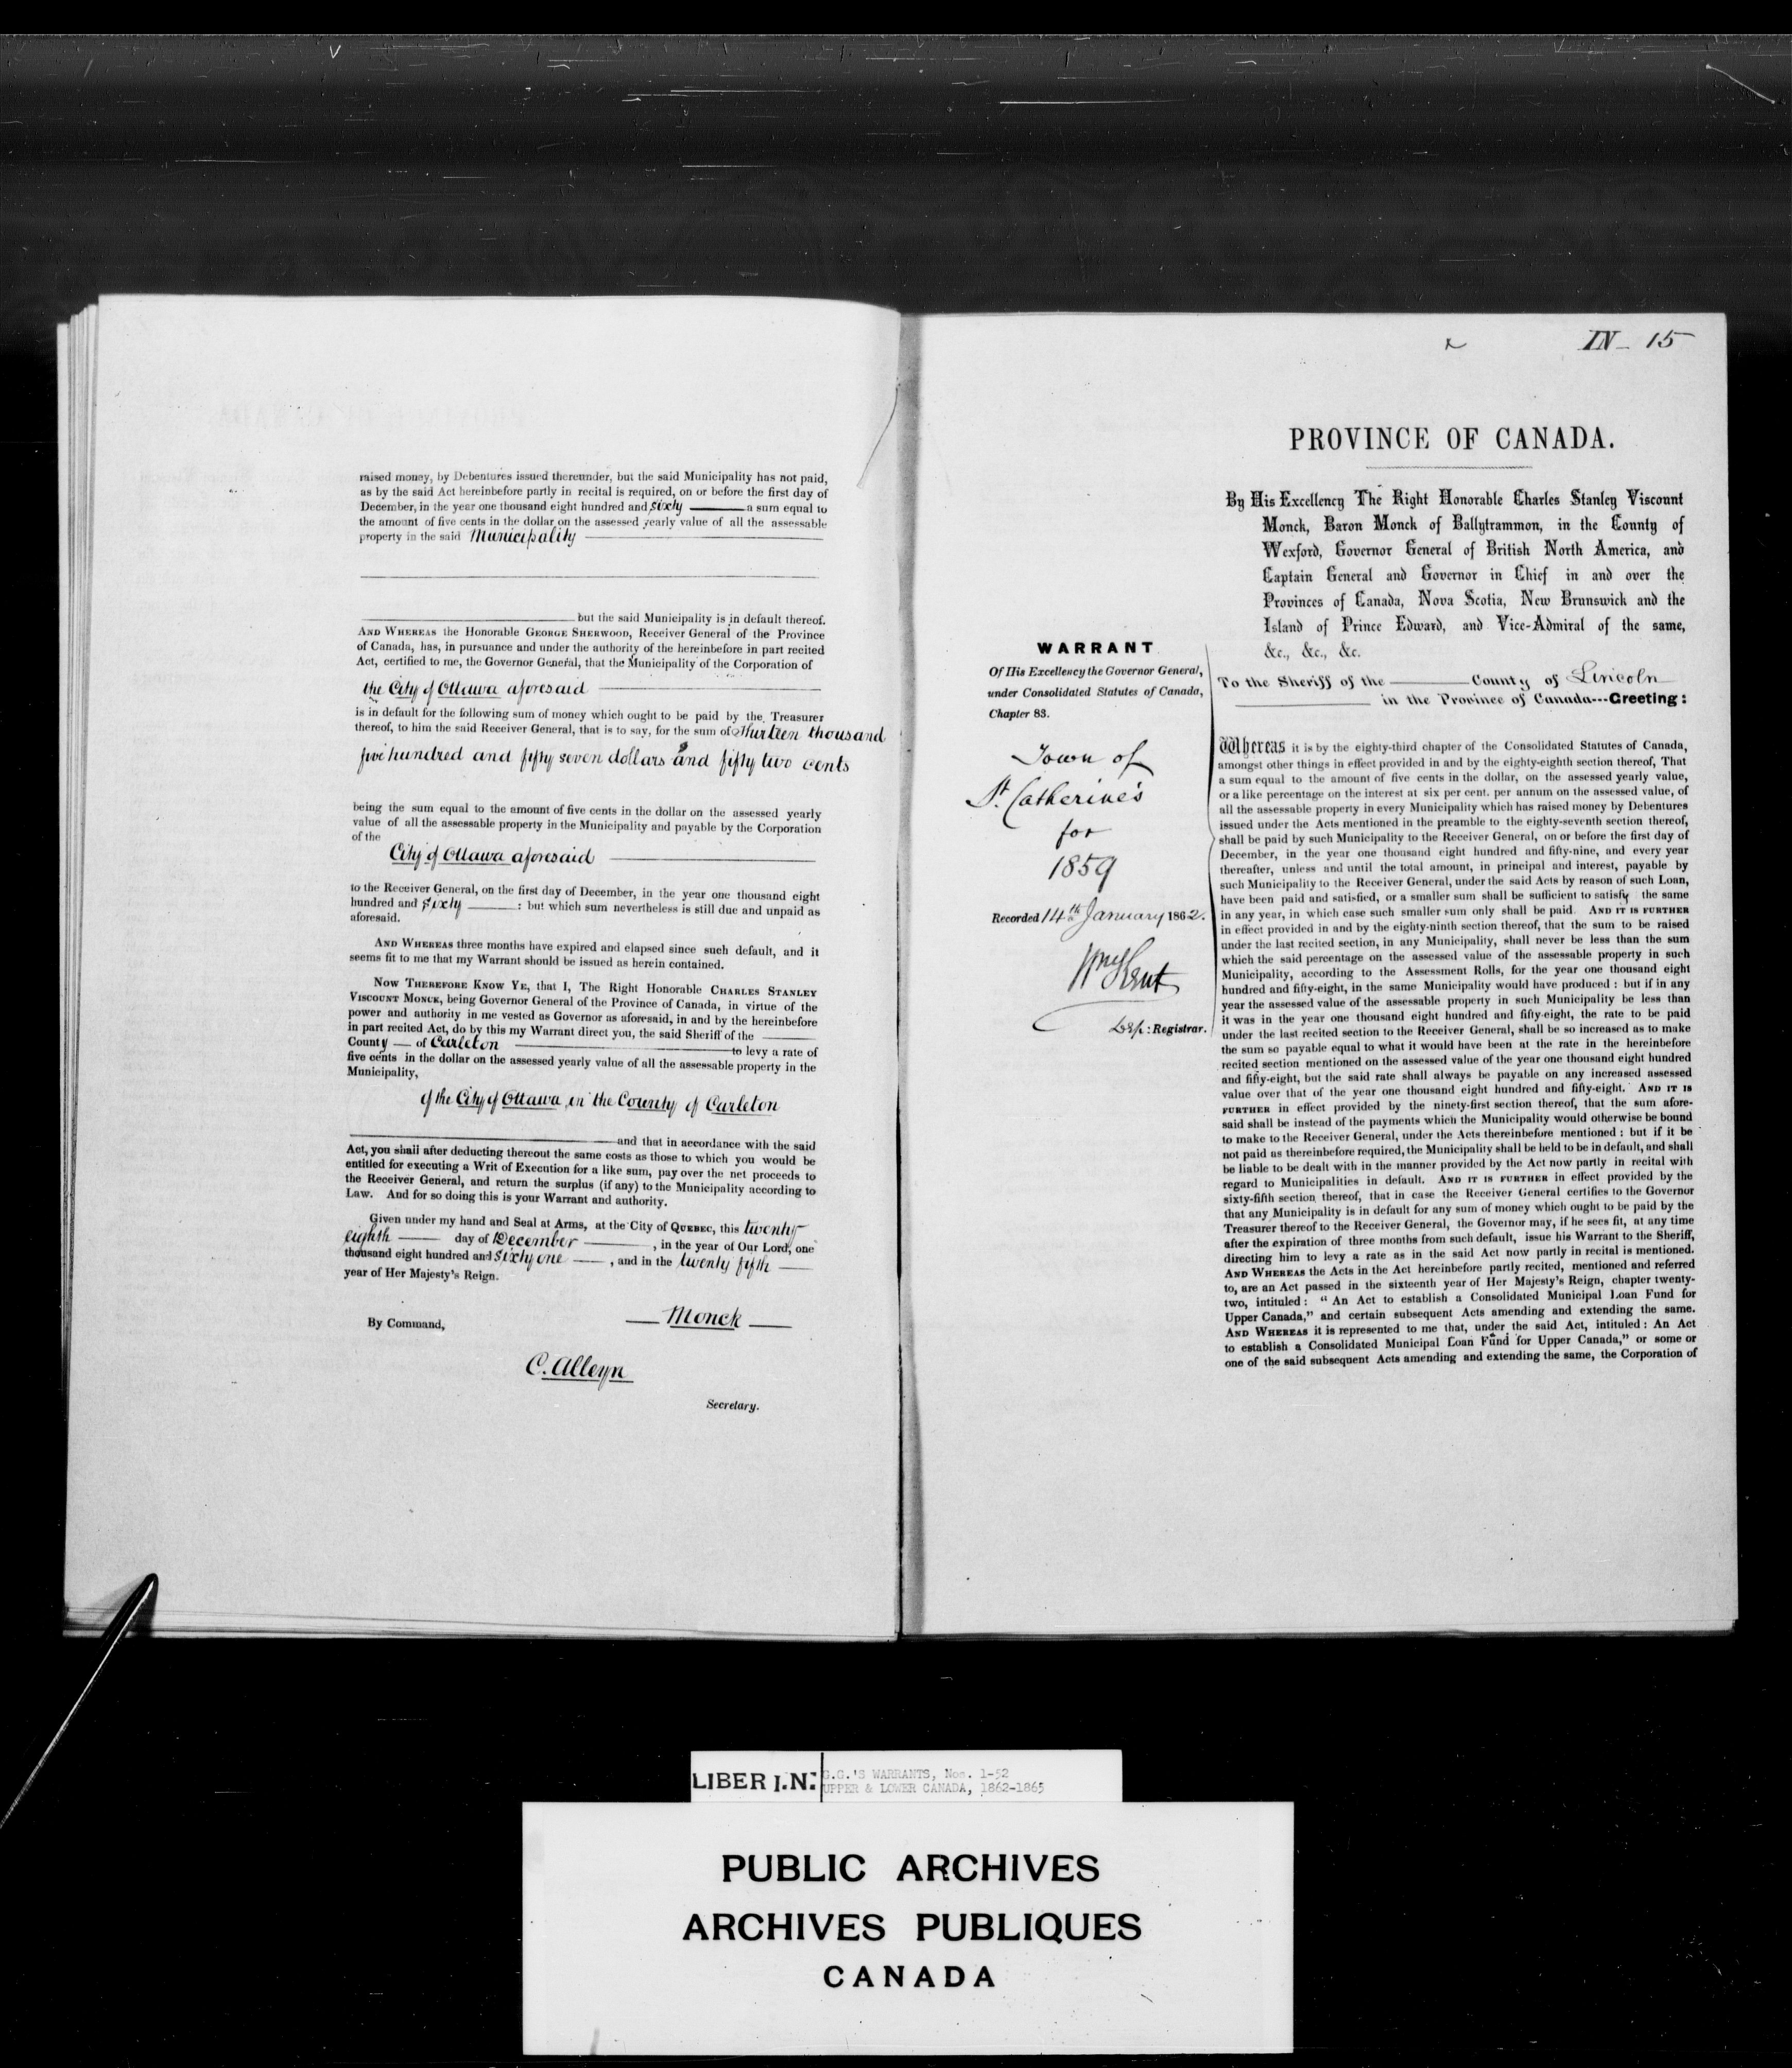 raised money, by Debentures issued thereunder, but the said Municipality has not paid,
as by the said Act hereinbefore partly in recital is required, on or before the first day of
December, in the year one thousand eight hundred and sixty a sum equal to
the amount of five cents in the dollar on the assessed yearly value of all the assessable
property in the said Municipality
but the said Municipality is in default thereof.
AND WHEREAS the Honorable GEORGE SHERWOOD, Receiver General of the Province
of Canada, has, in pursuance and under the authority of the hereinbefore in part recited
Act, certified to me, the Governor General, that the Municipality of the Corporation of
the City of Ottawa aforesaid
is in default for the following sum of money which ought to be paid by the Treasurer
thereof, to him the said Receiver General, that is to say, for the sum of Thirteen thousand
five hundred and fifty seven dollars and fifty two cents
being the sum equal to the amount of five cents in the dollar on the assessed yearly
value of all the assessable property in the Municipality and payable by the Corporation
of the
City of Ottawa aforesaid
to the Receiver General, on the first day of December, in the year one thousand eight
hundred and sixty : but which sum nevertheless is still due and unpaid as
aforesaid.
AND WHEREAS three months have expired and elapsed since such default, and it
seems fit to me that my Warrant should be issued as herein contained.
NOW THEREFORE KNOW YE, that I, The Right Honorable CHARLES STANLEY
VISCOUNT MONCK, being Governor General of the Province of Canada, in virtue of the
power and authority in me vested as Governor as aforesaid, in and by the hereinbefore
in part recited Act, do by this my Warrant direct you, the said Sheriff of the
County of Carleton
to levy a rate of
five cents in the dollar on the assessed yearly value of all the assessable property in the
Municipality,
of the City of Ottawa, in the County of Carleton
and that in accordance with the said
Act, you shall after deducting thereout the same costs as those to which you would be
entitled for executing a Writ of Execution for a like sum, pay over the net proceeds to
the Receiver General, and return the surplus (if any) to the Municipality according to
Law. And for so doing this is your Warrant and authority.
Given under my hand and Seal at Arms, at the City of QUEBEC, this twenty
eighth day of December , in the year of Our Lord, one
thousand eight hundred and sixty one , and in the twenty fifth
year of Her Majesty's Reign.
Monck
By Command,
C. Alleyn
Secretary.
IN - 15
PROVINCE OF CANADA.
By His Excellency The Right Honorable Charles Stanley Viscount
Monck, Baron Monck of Ballytrammon, in the County of
Wexford, Governor General of British North America, and
Captain General and Governor in Chief in and over the
Provinces of Canada, Nova Scotia, New Brunswick and the
Island of Prince Edward, and Vice-Admiral of the same,
&c., &c., &c.
WARRANT
Of His Excellency the Governor General,
under Consolidated Statutes of Canada,
Chapter 83.
Town of
St. Catherine's
for
1859
Recorded 14th January 1862.
Wm Kent
Dep: Registrar.
To the Sheriff of the County of Lincoln
in the Province of Canada---Greeting:
Whereas it is by the eighty-third chapter of the Consolidated Statutes of Canada,
amongst other things in effect provided in and by the eighty-eighth section thereof, That
a sum equal to the amount of five cents in the dollar, on the assessed yearly value,
or a like percentage on the interest at six per cent. per annum on the assessed value, of
all the assessable property in every Municipality which has raised money by Debentures
issued under the Acts mentioned in the preamble to the eighty-seventh section thereof,
shall be paid by such Municipality to the Receiver General, on or before the first day of
December, in the year one thousand eight hundred and fifty-nine, and every year
thereafter, unless and until the total amount, in principal and interest, payable by
such Municipality to the Receiver General, under the said Acts by reason of such Loan,
have been paid and satisfied, or a smaller sum shall be sufficient to satisfy the same
in any year, in which case such smaller sum only shall be paid. AND IT IS FURTHER
in effect provided in and by the eighty-ninth section thereof, that the sum to be raised
under the last recited section, in any Municipality, shall never be less than the sum
which the said percentage on the assessed value of the assessable property in such
Municipality, according to the Assessment Rolls, for the year one thousand eight
hundred and fifty-eight, in the same Municipality would have produced : but if in any
year the assessed value of the assessable property in such Municipality be less than
it was in the year one thousand eight hundred and fifty-eight, the rate to be paid
under the last recited section to the Receiver General, shall be so increased as to make
the sum so payable equal to what it would have been at the rate in the hereinbefore
recited section mentioned on the assessed value of the year one thousand eight hundred
and fifty-eight, but the said rate shall always be payable on any increased assessed
value over that of the year one thousand eight hundred and fifty-eight. AND IT IS
FURTHER in effect provided by the ninety-first section thereof, that the sum afore-
said shall be instead of the payments which the Municipality would otherwise be bound
to make to the Receiver General, under the Acts thereinbefore mentioned : but if it be
not paid as thereinbefore required, the Municipality shall be held to be in default, and shall
be liable to be dealt with in the manner provided by the Act now partly in recital with
regard to Municipalities in default. AND IT IS FURTHER in effect provided by the
sixty-fifth section thereof, that in case the Receiver General certifies to the Governor
that any Municipality is in default for any sum of money which ought to be paid by the
Treasurer thereof to the Receiver General, the Governor may, if he sees fit, at any time
after the expiration of three months from such default, issue his Warrant to the Sheriff,
directing him to levy a rate as in the said Act now partly in recital is mentioned.
AND WHEREAS the Acts in the Act hereinbefore partly recited, mentioned and referred
to, are an Act passed in the sixteenth year of Her Majesty's Reign, chapter twenty-
two, intituled : " An Act to establish a Consolidated Municipal Loan Fund for
Upper Canada," and certain subsequent Acts amending and extending the same.
AND WHEREAS it is represented to me that, under the said Act, intituled : An Act
to establish a Consolidated Municipal Loan Fund for Upper Canada," or some or
one of the said subsequent Acts amending and extending the same, the Corporation of
LIBER I.N.
G.G.'S WARRANTS, Nos. 1-52
UPPER & LOWER CANADA, 1862-1865
PUBLIC ARCHIVES
ARCHIVES PUBLIQUES
CANADA